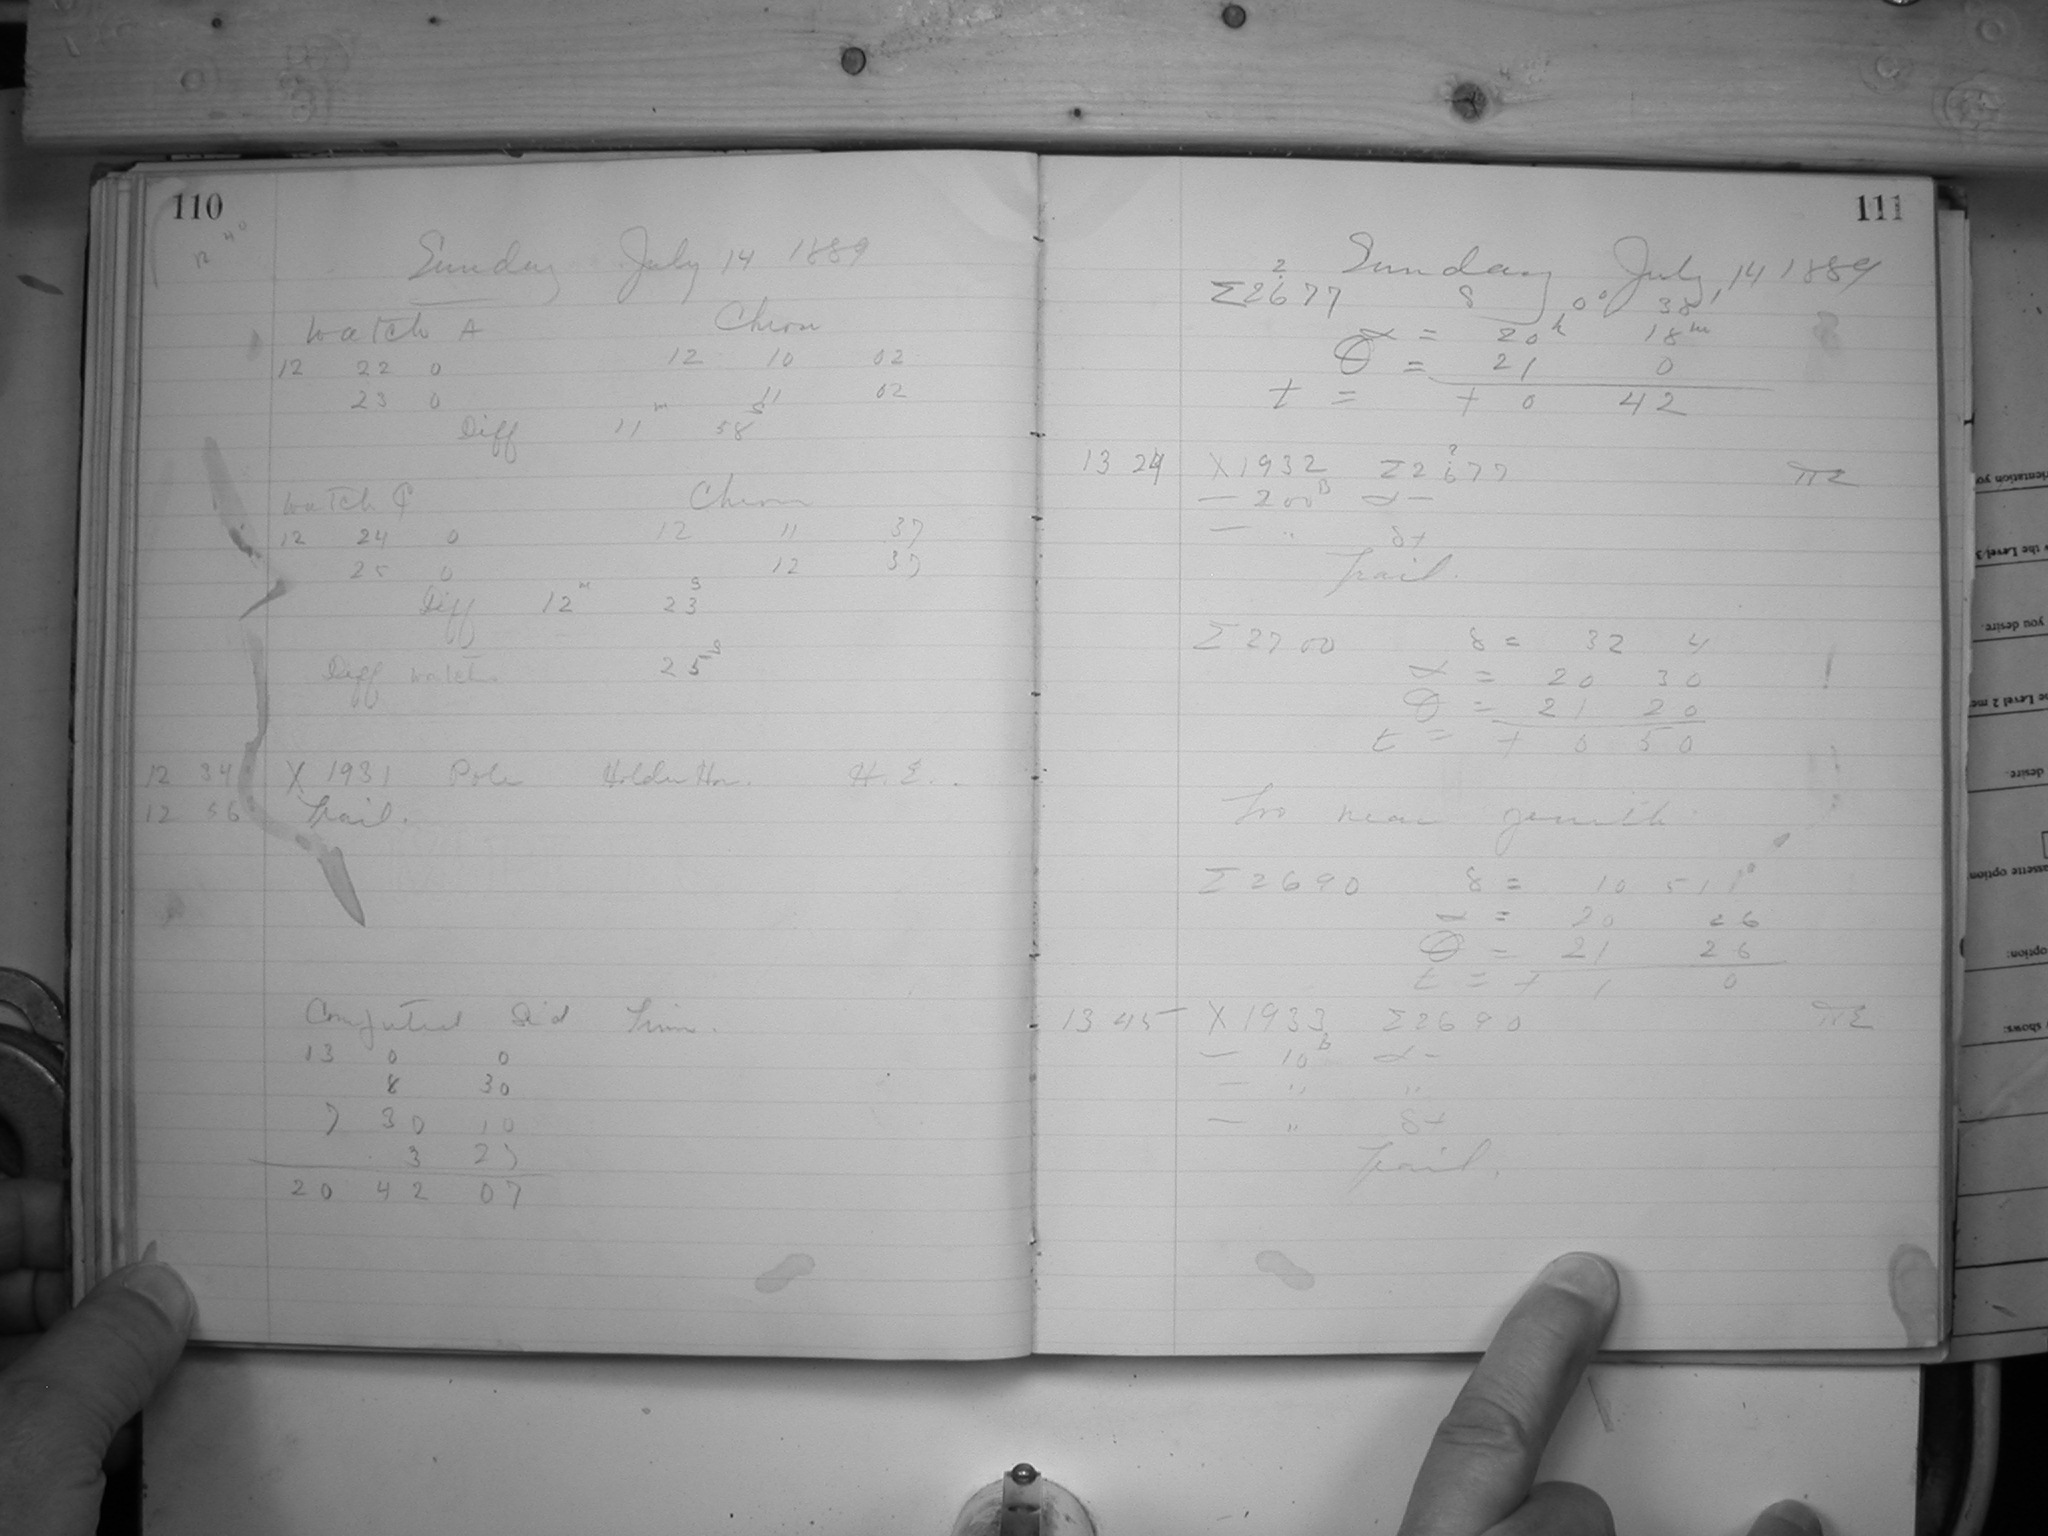 110
12 40
Sunday July 14 1889
Watch A Chron
12 22 0 12 10 02
23 0 11 02
Diff 11m 58s
Watch Chron
12 24 0 12 11 37
25 0 12 37
Diff 12m 23s
Diff watches 25s
12 34 X 1931 Pole Holder Hor. H.E.
12 56 Trail.
Computed Sid Time.
13 0 0
8 30
7 30 10
3 27
20 42 07
111
Sunday July 14 1889
?
Σ2677 δ 0° 38'
α = 20h 18m
θ = 21 0
t = + 0 42
?
13 24 X1932 Σ2677 πE
— 200B α —
— " δ+
Trail.
Σ2700 δ = 32 4
α = 20 30
θ = 21 20
t = + 0 50
Too near zenith
Σ2690 δ = 10 51
α = 20 26
θ = 21 26
t = + 1 0
13 45 X1933 Σ2690 πE
— 10B α —
— " "
— " δ+
Trail.